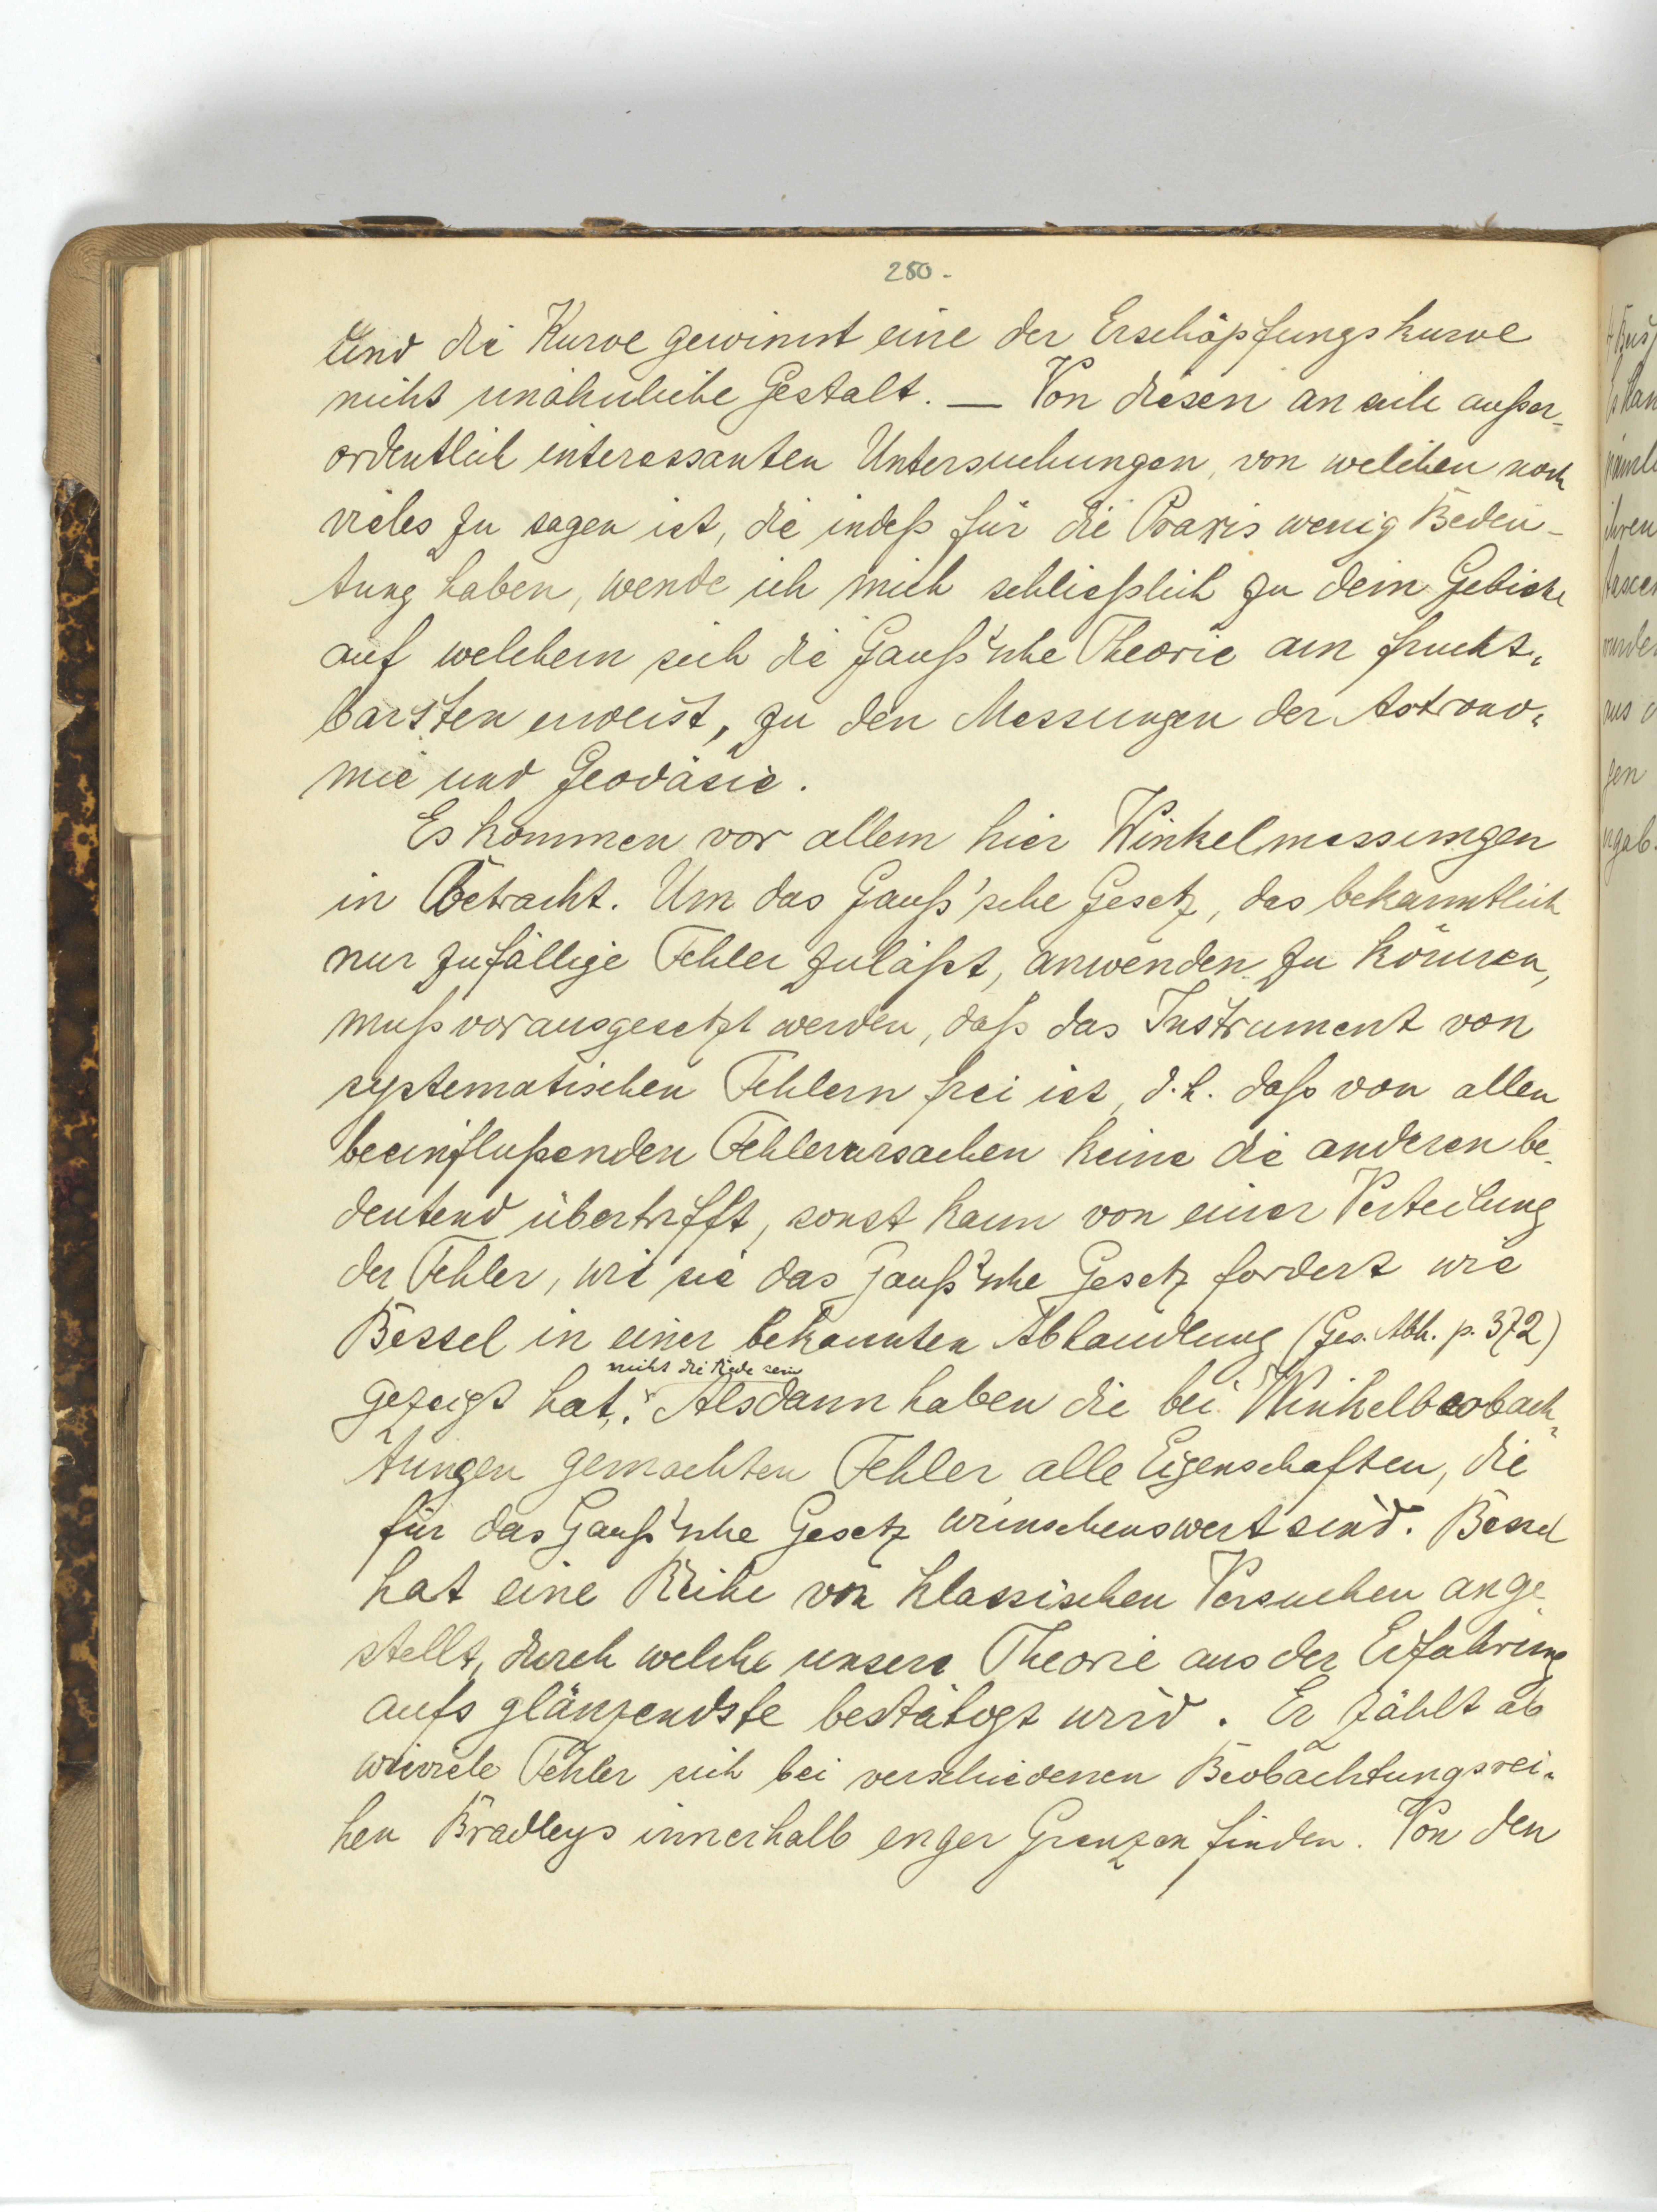 280.
und die Kurve gewinnt eine der Erschöpfungskurve
nicht unähnliche Gestalt. — Von diesen an sich außer-
ordentlich interessanten Untersuchungen, von welchen noch
vieles zu sagen ist, die indeß für die Praxis wenig Bedeu-
tung haben, wende ich mich schließlich zu dem Gebiete
auf welchem sich die Gauß'sche Theorie am frucht-
barsten erweist, zu den Messungen der Astrono-
mie und Geodäsie.
Es kommen vor allem hier Winkelmessungen
in Betracht. Um das Gauß'sche Gesetz, das bekanntlich
nur zufällige Fehler zuläßt, anwenden zu können,
muß vorausgesetzt werden, daß das Instrument von
systematischen Fehlern frei ist, d.h. daß von allen
beeinflußenden Fehlerursachen keine die anderen be-
deutend übertrifft, sonst kann von einer Verteilung
der Fehler, wie sie das Gauß'sche Gesetz fordert wie
Bessel in einer bekannten Abhandlung (Ges. Abh. p. 372)
nicht die Rede sein
gezeigt hat. Alsdann haben die bei Winkelbeobach-
tungen gemachten Fehler alle Eigenschaften, die
für das Gauß'sche Gesetz wünschenswert sind. Bessel
hat eine Reihe von klassischen Versuchen ange-
stellt, durch welche unsere Theorie aus der Erfahrung
aufs glänzendste bestätigt wird. Er zählt ab
wieviele Fehler sich bei verschiedenen Beobachtungsrei-
hen Bradleys innerhalb enger Grenzen finden. Von den